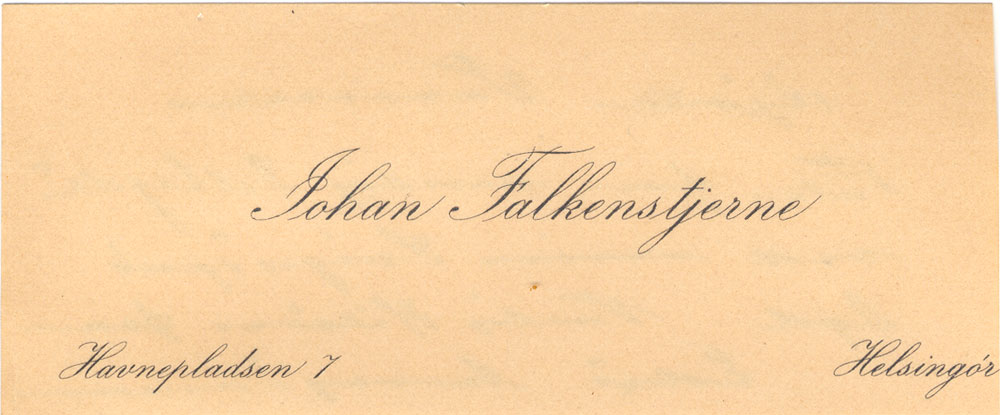 Johan Falkenstjerne
Havnepladsen 7 Helsingór